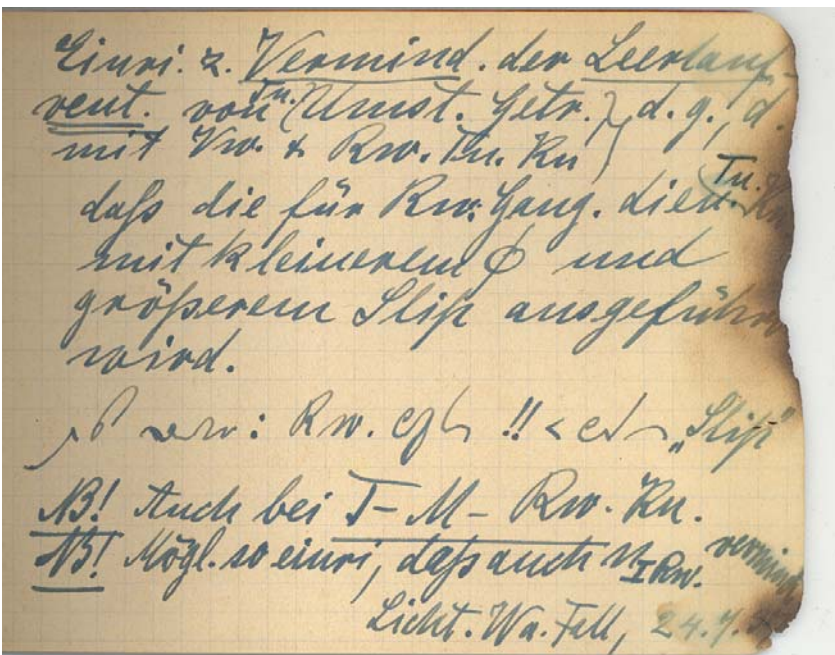 Einri. z. Vermind. der Leerlauf-
vent. von Tu. (Umst. Getr. } d. g., d.
mit Vw. & Rw. Tu. Ku }
daß die für Rw. Gang. dien. Tu. Ku
mit kleinerem ϕ und
größerem Slip ausgeführ
wird.
: Rw. !! < „Slip“
NB! Auch bei T-M- Rw. Ku.
NB! Mögl. so einri, daß auch I Rw. vermind
Licht. Wa. Fall, 24.7.